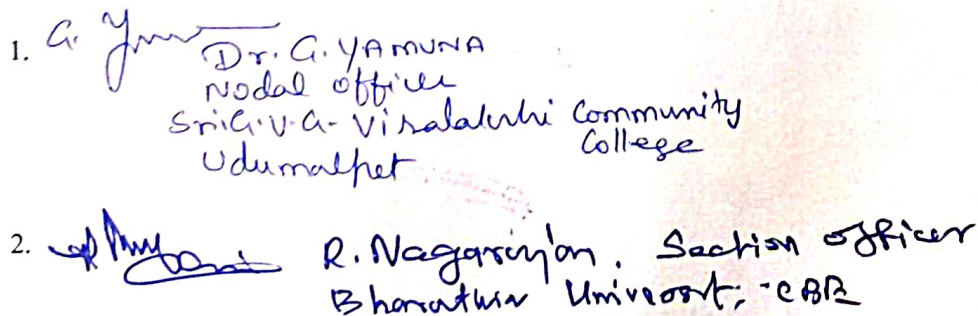 1. G. Yamuna Dr. G. YAMUNA
Nodal officer
Sri.G.V.G- Visalakshi Community
College
Udumalpet
2. R. Nagarajan, Section officer
Bharathiar University, -CBE